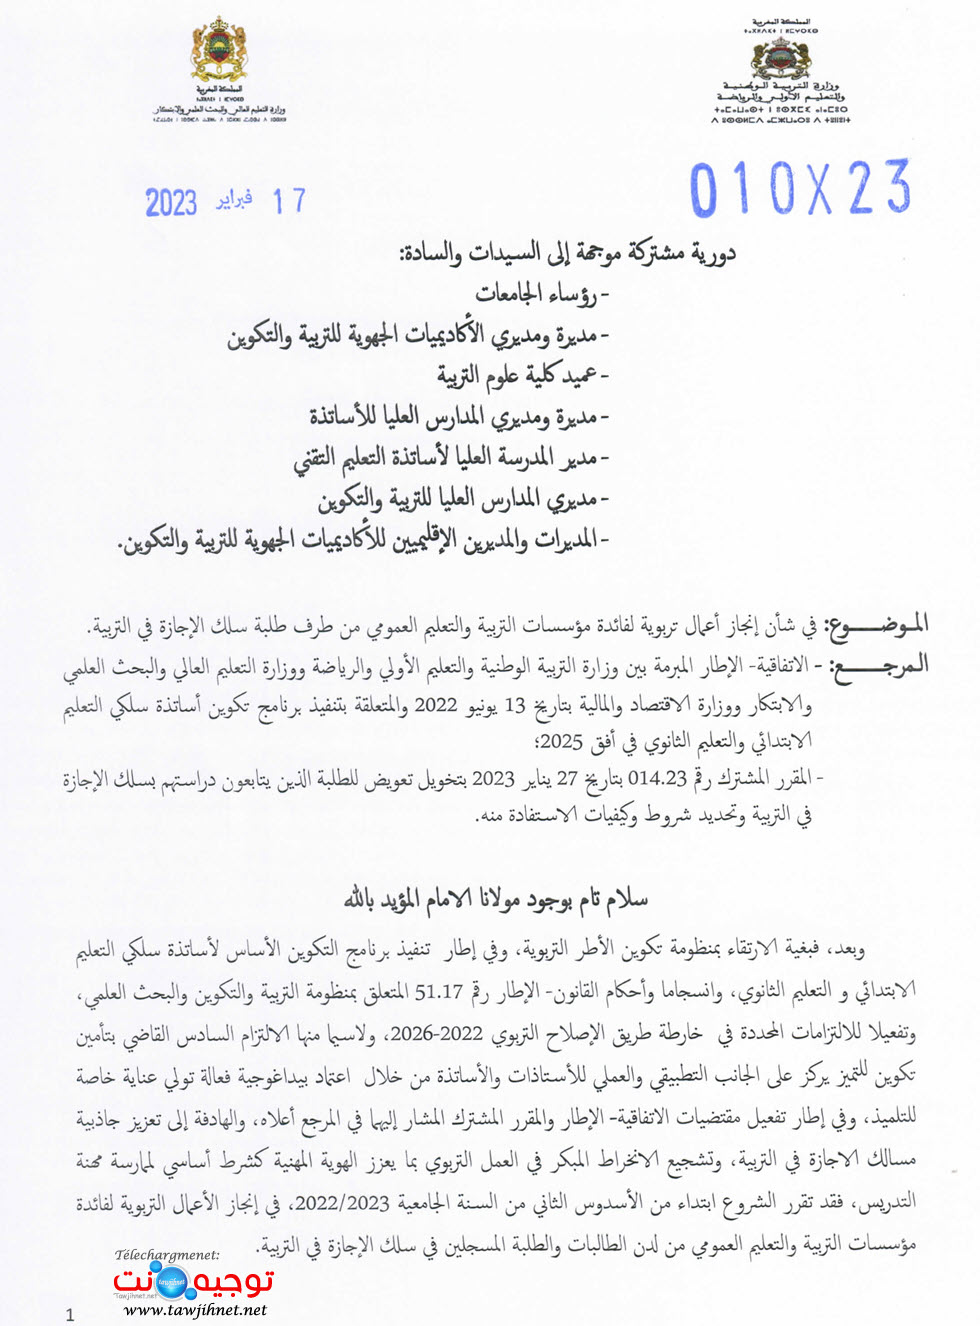 المملكة المغربية
وزارة التربية الوطنية
والتعليم الأولي والرياضة
المملكة المغربية
وزارة التعليم العالي والبحث العلمي والابتكار
010X23
17 فبراير 2023
دورية مشتركة موجهة إلى السيدات والسادة:
- رؤساء الجامعات
- مديرة ومديري الأكاديميات الجهوية للتربية والتكوين
- عميد كلية علوم التربية
- مديرة ومديري المدارس العليا للأساتذة
- مدير المدرسة العليا لأساتذة التعليم التقني
- مديري المدارس العليا للتربية والتكوين
- المديرات والمديرين الإقليميين للأكاديميات الجهوية للتربية والتكوين.
الموضوع: في شأن إنجاز أعمال تربوية لفائدة مؤسسات التربية والتعليم العمومي من طرف طلبة سلك الإجازة في التربية.
المرجع: - الاتفاقية- الإطار المبرمة بين وزارة التربية الوطنية والتعليم الأولي والرياضة ووزارة التعليم العالي والبحث العلمي
والابتكار ووزارة الاقتصاد والمالية بتاريخ 13 يونيو 2022 والمتعلقة بتنفيذ برنامج تكوين أساتذة سلكي التعليم
الابتدائي والتعليم الثانوي في أفق 2025؛
- المقرر المشترك رقم 014.23 بتاريخ 27 يناير 2023 بتخويل تعويض للطلبة الذين يتابعون دراستهم بسلك الإجازة
في التربية وتحديد شروط وكيفيات الاستفادة منه.
سلام تام بوجود مولانا الامام المؤيد بالله
وبعد، فبغية الارتقاء بمنظومة تكوين الأطر التربوية، وفي إطار تنفيذ برنامج التكوين الأساس لأساتذة سلكي التعليم
الابتدائي و التعليم الثانوي، وانسجاما وأحكام القانون- الإطار رقم 51.17 المتعلق بمنظومة التربية والتكوين والبحث العلمي،
وتفعيلا للالتزامات المحددة في خارطة طريق الإصلاح التربوي 2022-2026، ولاسيما منها الالتزام السادس القاضي بتأمين
تكوين للتميز يركز على الجانب التطبيقي والعملي للأستاذات والأساتذة من خلال اعتماد بيداغوجية فعالة تولي عناية خاصة
للتلميذ، وفي إطار تفعيل مقتضيات الاتفاقية- الإطار والمقرر المشترك المشار إليهما في المرجع أعلاه، والهادفة إلى تعزيز جاذبية
مسالك الاجازة في التربية، وتشجيع الانخراط المبكر في العمل التربوي بما يعزز الهوية المهنية كشرط أساسي لممارسة مهنة
التدريس، فقد تقرر الشروع ابتداء من الأسدوس الثاني من السنة الجامعية 2022/2023، في إنجاز الأعمال التربوية لفائدة
مؤسسات التربية والتعليم العمومي من لدن الطالبات والطلبة المسجلين في سلك الإجازة في التربية.
Télechargmenet:
توجيه نت
Tawjihnet.net
www.tawjihnet.net
1